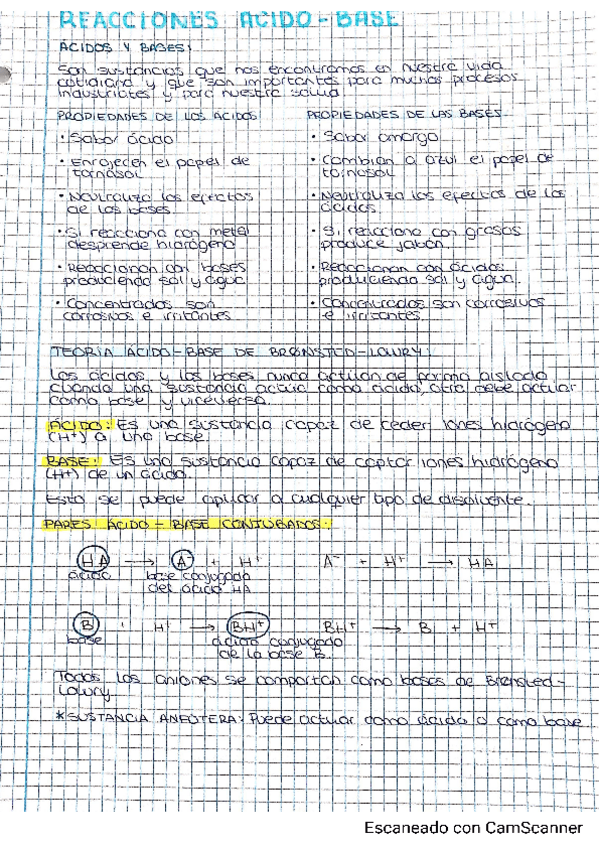 REACCIONES ACIDO-BASE
ACIDOS Y BASES:
Son sustancias que nos encontramos en nuestra vida
cotidiana y que son importantes para muchos procesos
industriales y para nuestra salud.
PROPIEDADES DE LOS ACIDOS
· Sabor ácido
· Enrojecen el papel de
tornasol
· Neutraliza los efectos
de las bases.
· Si reacciona con metal
desprende hidrógeno
· Reaccionan con bases
produciendo sal y agua
· Concentrados son
corrosivos e irritantes
PROPIEDADES DE LAS BASES
· Sabor amargo
· Cambian a azul el papel de
tornasol
· Neutraliza los efectos de los
ácidos.
· Si reacciona con grasas
produce jabón.
· Reaccionan con ácidos
produciendo sal y agua.
· Concentrados son corrosivos
e irritantes.
TEORÍA ÁCIDO-BASE DE BRØNSTED-LOWRY:
Los ácidos y las bases nunca actúan de forma aislada
cuando una sustancia actúa como ácido, otra debe actuar
como base y viceversa.
ÁCIDO: Es una sustancia capaz de ceder iones hidrógeno
(H+) a una base.
BASE: Es una sustancia capaz de captar iones hidrógeno
(H+) de un ácido.
Esto se puede aplicar a cualquier tipo de disolvente.
PARES ÁCIDO-BASE CONJUGADOS:
HA → A⁻ + H⁺ A⁻ + H⁺ → HA
ácido base conjugada
del ácido HA
B + H⁺ → BH⁺ BH⁺ → B + H⁺
base ácido conjugado
de la base B.
Todos los aniones se comportan como bases de Brønsted-
Lowry
*SUSTANCIA ANFÓTERA: Puede actuar como ácido o como base
Escaneado con CamScanner